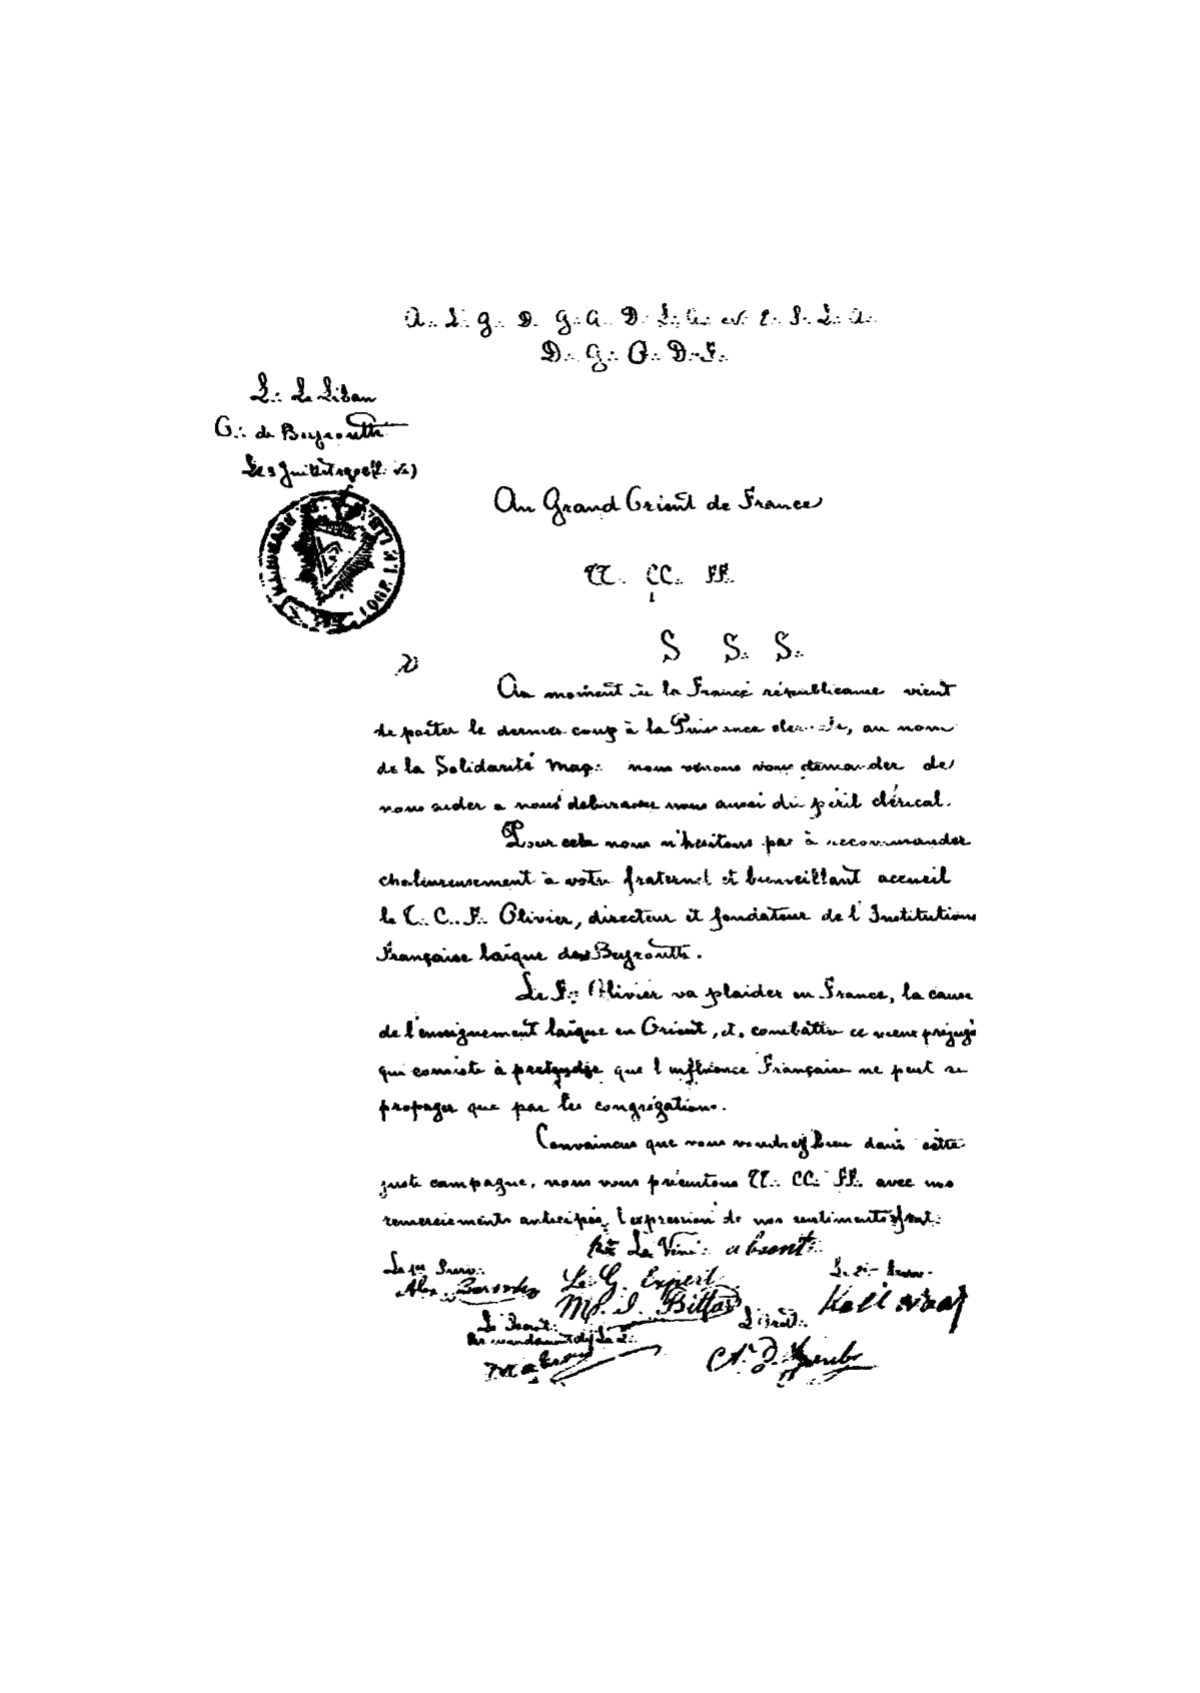 A∴ L∴ G∴ D∴ G∴ A∴ D∴ L∴ U∴ et E∴ S∴ L∴ A∴
D∴ G∴ O∴ D∴ F∴
L∴ Le Liban
O∴ de Beyrouth
Au Grand Orient de France
TT∴ CC∴ FF∴
S∴ S∴ S∴
Au moment où la France républicaine vient
de porter le dernier coup à la Puissance cléricale, au nom
de la Solidarité Maç∴ nous venons vous demander de
nous aider à nous débarasser nous aussi du péril clérical.
Pour cela nous n'hésitons pas à recommander
chaleureusement à votre fraternel et bienveillant accueil
le T∴ C∴ F∴ Olivier, directeur et fondateur de l'Institution
Française laïque de Beyrouth.
Le F∴ Olivier va plaider en France, la cause
de l'enseignement laïque en Orient, et combattre ce vieux préjugé
qui consiste à prétendre que l'influence Française ne peut se
propager que par les congrégations.
Convaincus que vous voudrez bien dans cette
juste campagne, nous vous présentons TT∴ CC∴ FF∴ avec nos
remerciements anticipés, l'expression de nos sentiments frat∴
Le Véné∴ absent∴
Le 1er Surv∴ Le G. Expert Le 2e Surv∴
Alex M. I. Bittar
Le Secrét∴ L'Orat∴
Par mandement de la L∴